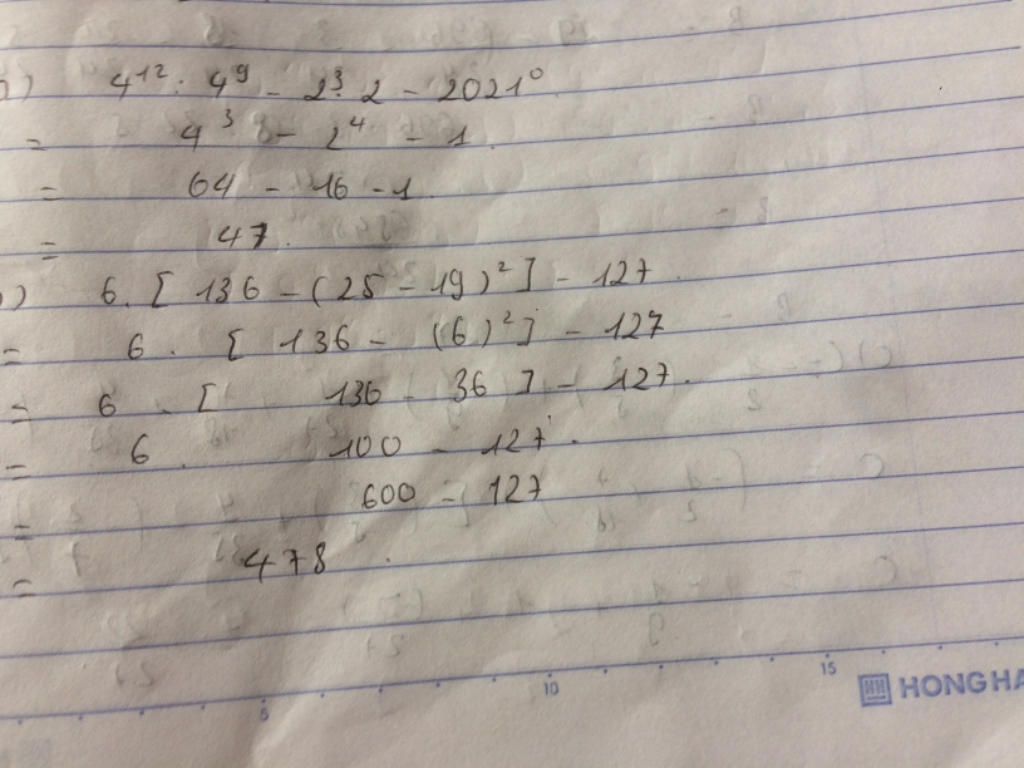 a) 4¹² : 4⁹ - 2³. 2 - 2021⁰
= 4³ - 2⁴ - 1.
= 64 - 16 - 1
= 47.
b) 6. [ 136 - (25 - 19)² ] - 127.
= 6. [ 136 - (6)² ] - 127
= 6. [ 136 - 36 ] - 127.
= 6. 100 - 127.
= 600 - 127
= 478.
5 10 15
HONG HA